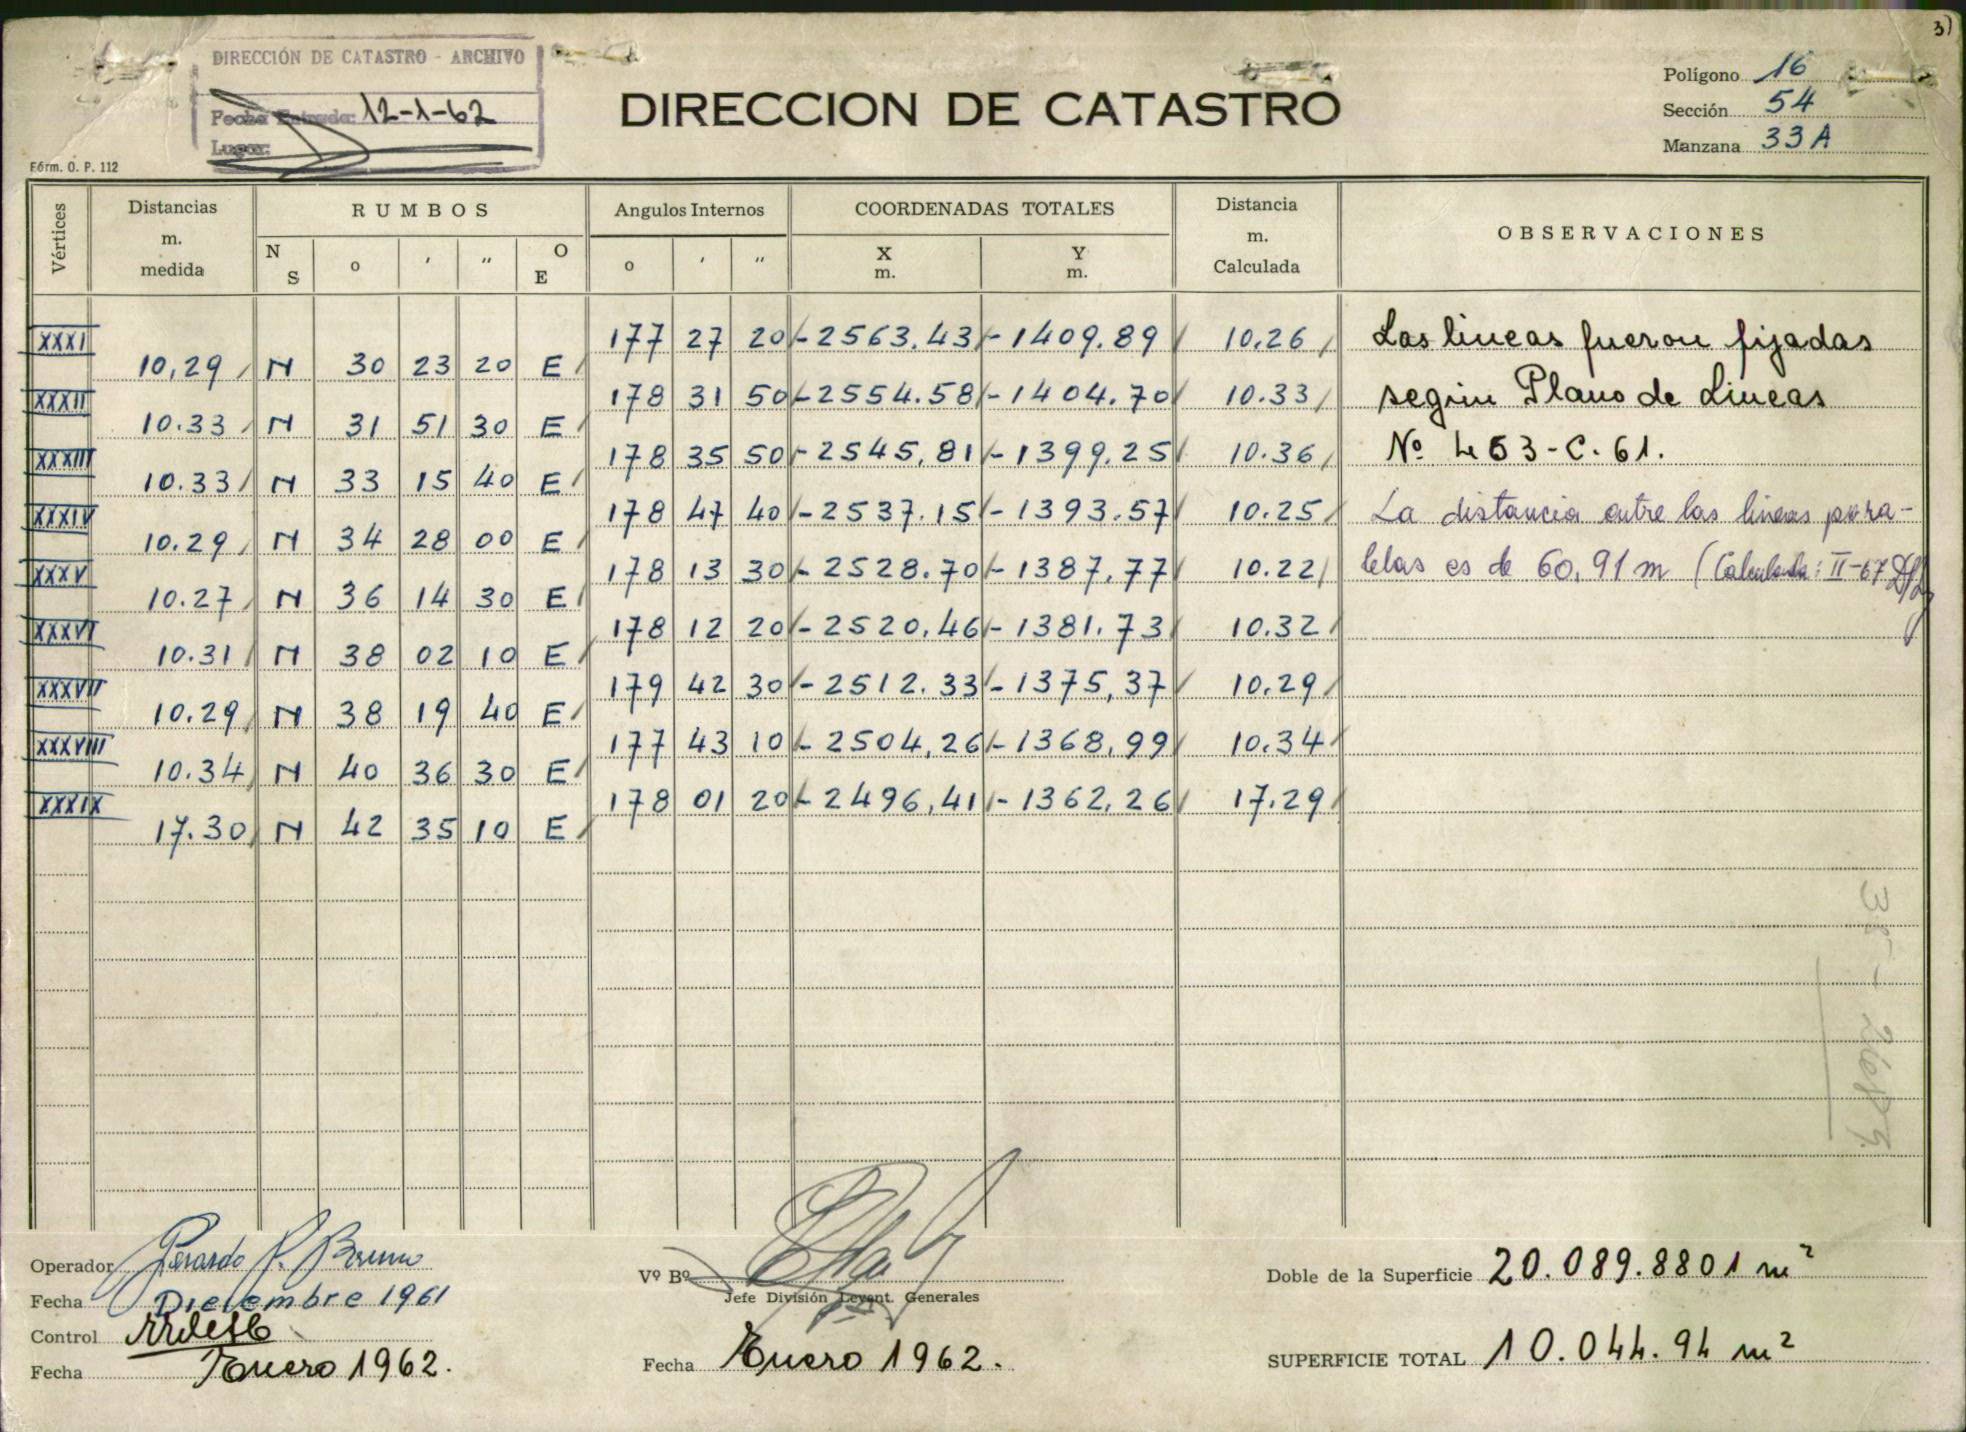 3)
DIRECCIÓN DE CATASTRO - ARCHIVO
Fecha Entrada: 12-1-62
Lugar:
DIRECCION DE CATASTRO
Polígono 16
Sección 54
Manzana 33 A
Fórm. O. P. 112
Vértices Distancias m. medida RUMBOS Angulos Internos COORDENADAS TOTALES Distancia m. Calculada OBSERVACIONES
N S o ' " O E o ' " X m. Y m.
XXXI 177 27 20 -2563.43 -1409.89 10.26 Las lineas fueron fijadas
10,29 N 30 23 20 E
XXXII 178 31 50 -2554.58 -1404.70 10.33 según Plano de Lineas
10.33 N 31 51 30 E
XXXIII 178 35 50 -2545,81 -1399.25 10.36 Nº 453-C.61.
10.33 N 33 15 40 E
XXXIV 178 47 40 -2537.15 -1393.57 10.25 La distancia entre las lineas para-
10.29 N 34 28 00 E
XXXV 178 13 30 -2528.70 -1387,77 10.22 lelas es de 60,91 m (Calculada: II-67
10.27 N 36 14 30 E
XXXVI 178 12 20 -2520,46 -1381.73 10.32
10.31 N 38 02 10 E
XXXVII 179 42 30 -2512.33 -1375,37 10.29
10.29 N 38 19 40 E
XXXVIII 177 43 10 -2504,26 -1368,99 10.34
10.34 N 40 36 30 E
XXXIX 178 01 20 -2496,41 -1362,26 17.29
17.30 N 42 35 10 E
Operador Gerardo P. Bruno
Fecha Diciembre 1961
Control
Fecha Enero 1962.
Vº Bº
Jefe División Levant. Generales
Fecha Enero 1962.
Doble de la Superficie 20.089.8801 m²
SUPERFICIE TOTAL 10.044.94 m²